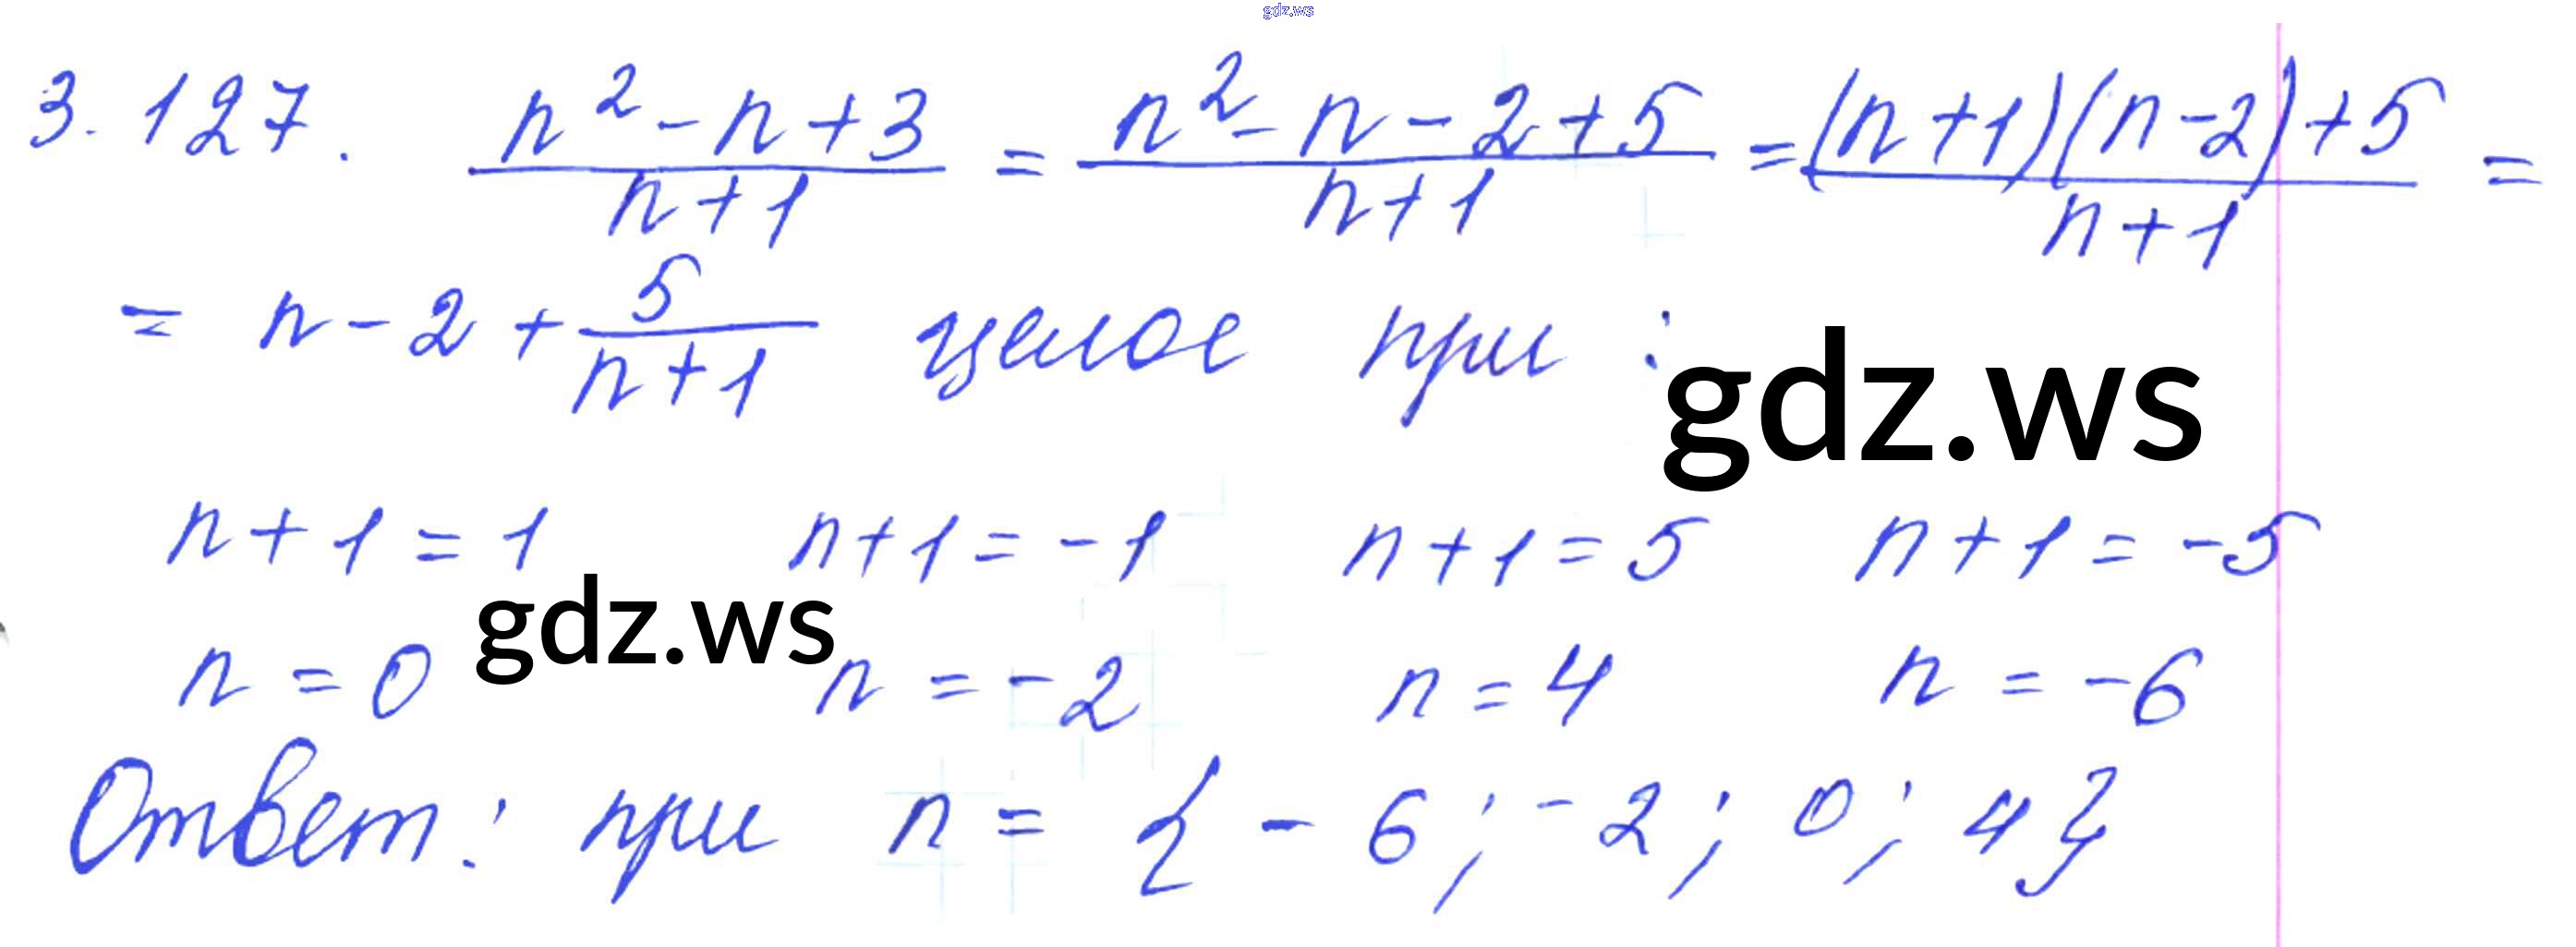 gdz.ws
3.127. (n² - n + 3)/(n + 1) = (n² - n - 2 + 5)/(n + 1) = ((n + 1)(n - 2) + 5)/(n + 1) =
= n - 2 + 5/(n + 1) целое при :
gdz.ws
n + 1 = 1 n + 1 = -1 n + 1 = 5 n + 1 = -5
gdz.ws
n = 0 n = -2 n = 4 n = -6
Ответ: при n = { - 6 ; - 2 ; 0 ; 4 }